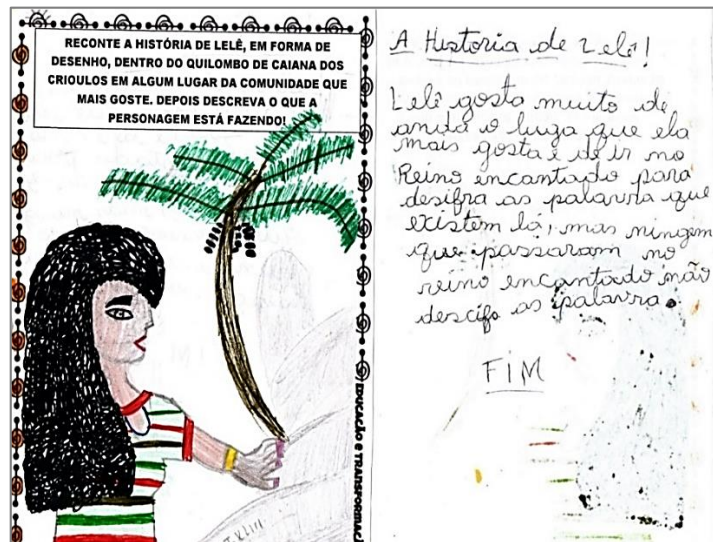 RECONTE A HISTÓRIA DE LELÊ, EM FORMA DE
DESENHO, DENTRO DO QUILOMBO DE CAIANA DOS
CRIOULOS EM ALGUM LUGAR DA COMUNIDADE QUE
MAIS GOSTE. DEPOIS DESCREVA O QUE A
PERSONAGEM ESTÁ FAZENDO!
EDUCAÇÃO e TRANSFORMAÇ
A Historia de Lelê!
Lelê gosta muito de
anda o luga que ela
mais gosta é de ir no
Reino encantado para
desifra as palavra que
existem lá, mas ningem
que passaram no
reino encantado não
descifo as palavra.
FIM